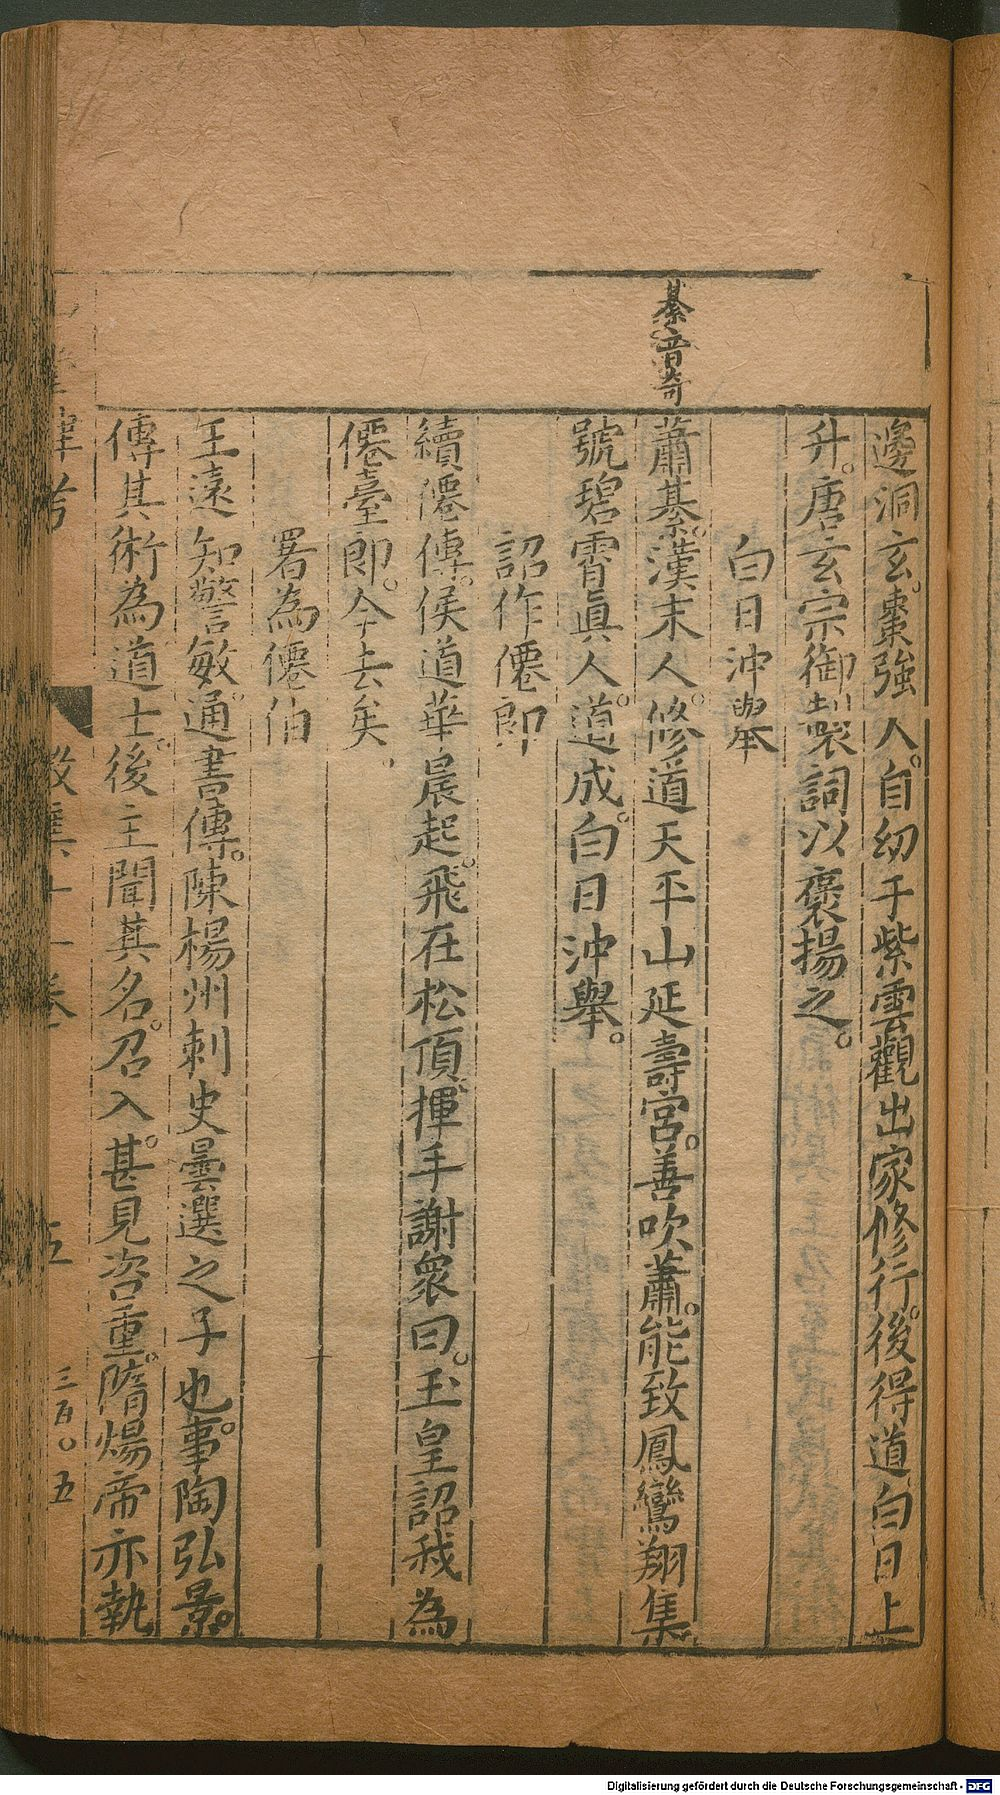 綦音奇
邊洞玄。棗強人。自幼于紫雲觀出家修行。後得道白日上
升。唐玄宗御製詞以褒揚之。
白日沖舉
蕭綦。漢末人。修道天平山延壽宮。善吹蕭。能致鳳鸞翔集
號碧霄眞人。道成。白日沖舉。
詔作僊郎
續僊傳。侯道華晨起。飛在松頂。揮手謝衆曰。玉皇詔我為
僊臺郎。今去矣。
署為僊伯
王遠知警敏。通書傳。陳楊州刺史曇選之子也。事陶弘景。
傳其術為道士。後主聞其名。召入。甚見咨重。隋煬帝亦執
三百〇五
Digitalisierung gefördert durch die Deutsche Forschungsgemeinschaft - DFG